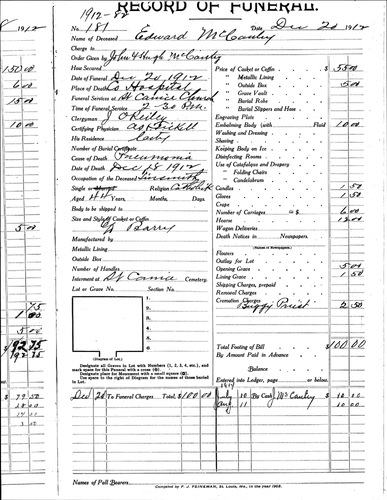 1912-82
RECORD OF FUNERAL.
No. 181 Date, Dec 20 1912
Name of Deceased Edward McCauley
Charge to
Order Given by John & Hugh McCauley
How Secured
Date of Funeral Dec 20 1912
Place of Death Co Hospital
Funeral Services at St Canice Church
Time of Funeral Service
Clergyman J O'Reilly
Certifying Physician
His Residence City
Number of Burial Certificate
Cause of Death Pneumonia
Date of Death Dec 18 1912
Occupation of the Deceased Tinsmith
Single Religion Catholic
Aged 44 Years, Months, Days.
Body to be shipped to
Size and Style of Casket or Coffin
Barry
Manufactured by
Metallic Lining
Outside Box
Number of Handles
Interment at St Canice Cemetery.
Lot or Grave No. Section No.
1.
2.
3.
4.
5.
6.
(Diagram of Lot.)
Designate all Graves in Lot with Numbers (1, 2, 3, 4, etc.), and mark space for this Funeral with a cross
Designate place for Monument with a small square
Use space to the right of Diagram for names of those buried in Lot.
Price of Casket or Coffin $ 55 00
" Metallic Lining
" Outside Box 5 00
" Grave Vault
" Burial Robe
" Burial Slippers and Hose
Engraving Plate
Embalming Body (with Fluid) 10 00
Washing and Dressing
Shaving
Keeping Body on Ice
Disinfecting Rooms
Use of Catafalque and Drapery
" Folding Chairs
" Candelabrum
Candles 1 50
Gloves 1 50
Crape
Number of Carriages @ $ 6 00
Hearse 12 00
Wagon Deliveries
Death Notices in Newspapers
(Names of Newspapers)
Flowers
Outlay for Lot
Opening Grave 5 00
Lining Grave 1 50
Shipping Charges, prepaid
Removal Charges
Cremation Charges
Buggy Priest 2 50
Total Footing of Bill $ 100 00
By Amount Paid in Advance
Balance
Entered into Ledger, page or below.
Dec 20 To Funeral Charges Total, $ 100 00
1914
July 10 By Cash McCauley $ 10 00
Aug 11 10 00
Names of Pall Bearers
Compiled by F. J. FEINEMAN, St. Louis, Mo., in the year 1908.
1912
150 00
6 00
15 00
10 00
5 00
75
1 00
5 00
$192 75
192 75
$ 79 50
28 00
14 00